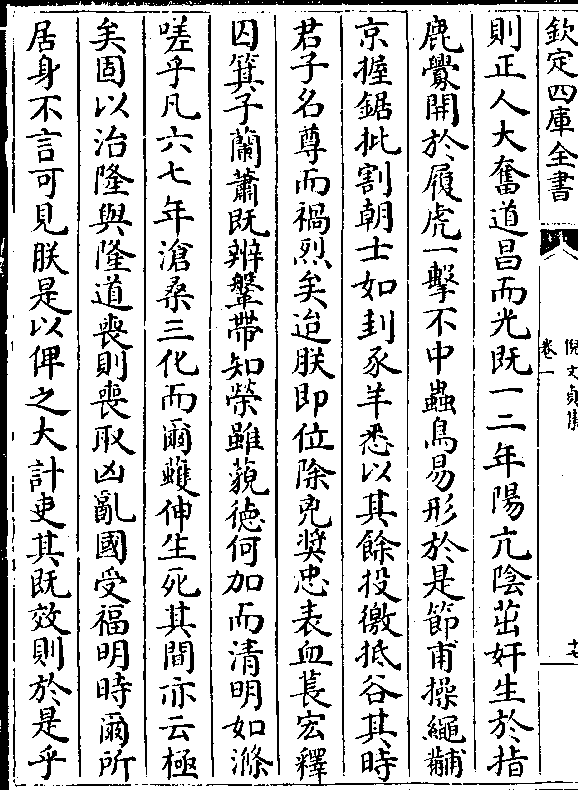 欽定四庫全書
倪文貞集
卷一
則正人大奮道昌而光既一二年陽亢陰茁奸生於指
鹿釁開於履虎一擊不中蟲鳥易形於是節甫操繩黼
京握鋸批割朝士如刲豕羊悉以其餘投徼抵谷其時
君子名尊而禍烈矣迨朕即位除兇奬忠表血萇宏釋
囚箕子蘭蕭既辨鞶帶知榮雖藐徳何加而清明如滌
嗟乎凡六七年滄桑三化而爾蠖伸生死其間亦云極
矣固以治隆與隆道喪則喪取凶亂國受福明時爾所
居身不言可見朕是以俾之大計吏其既效則於是乎